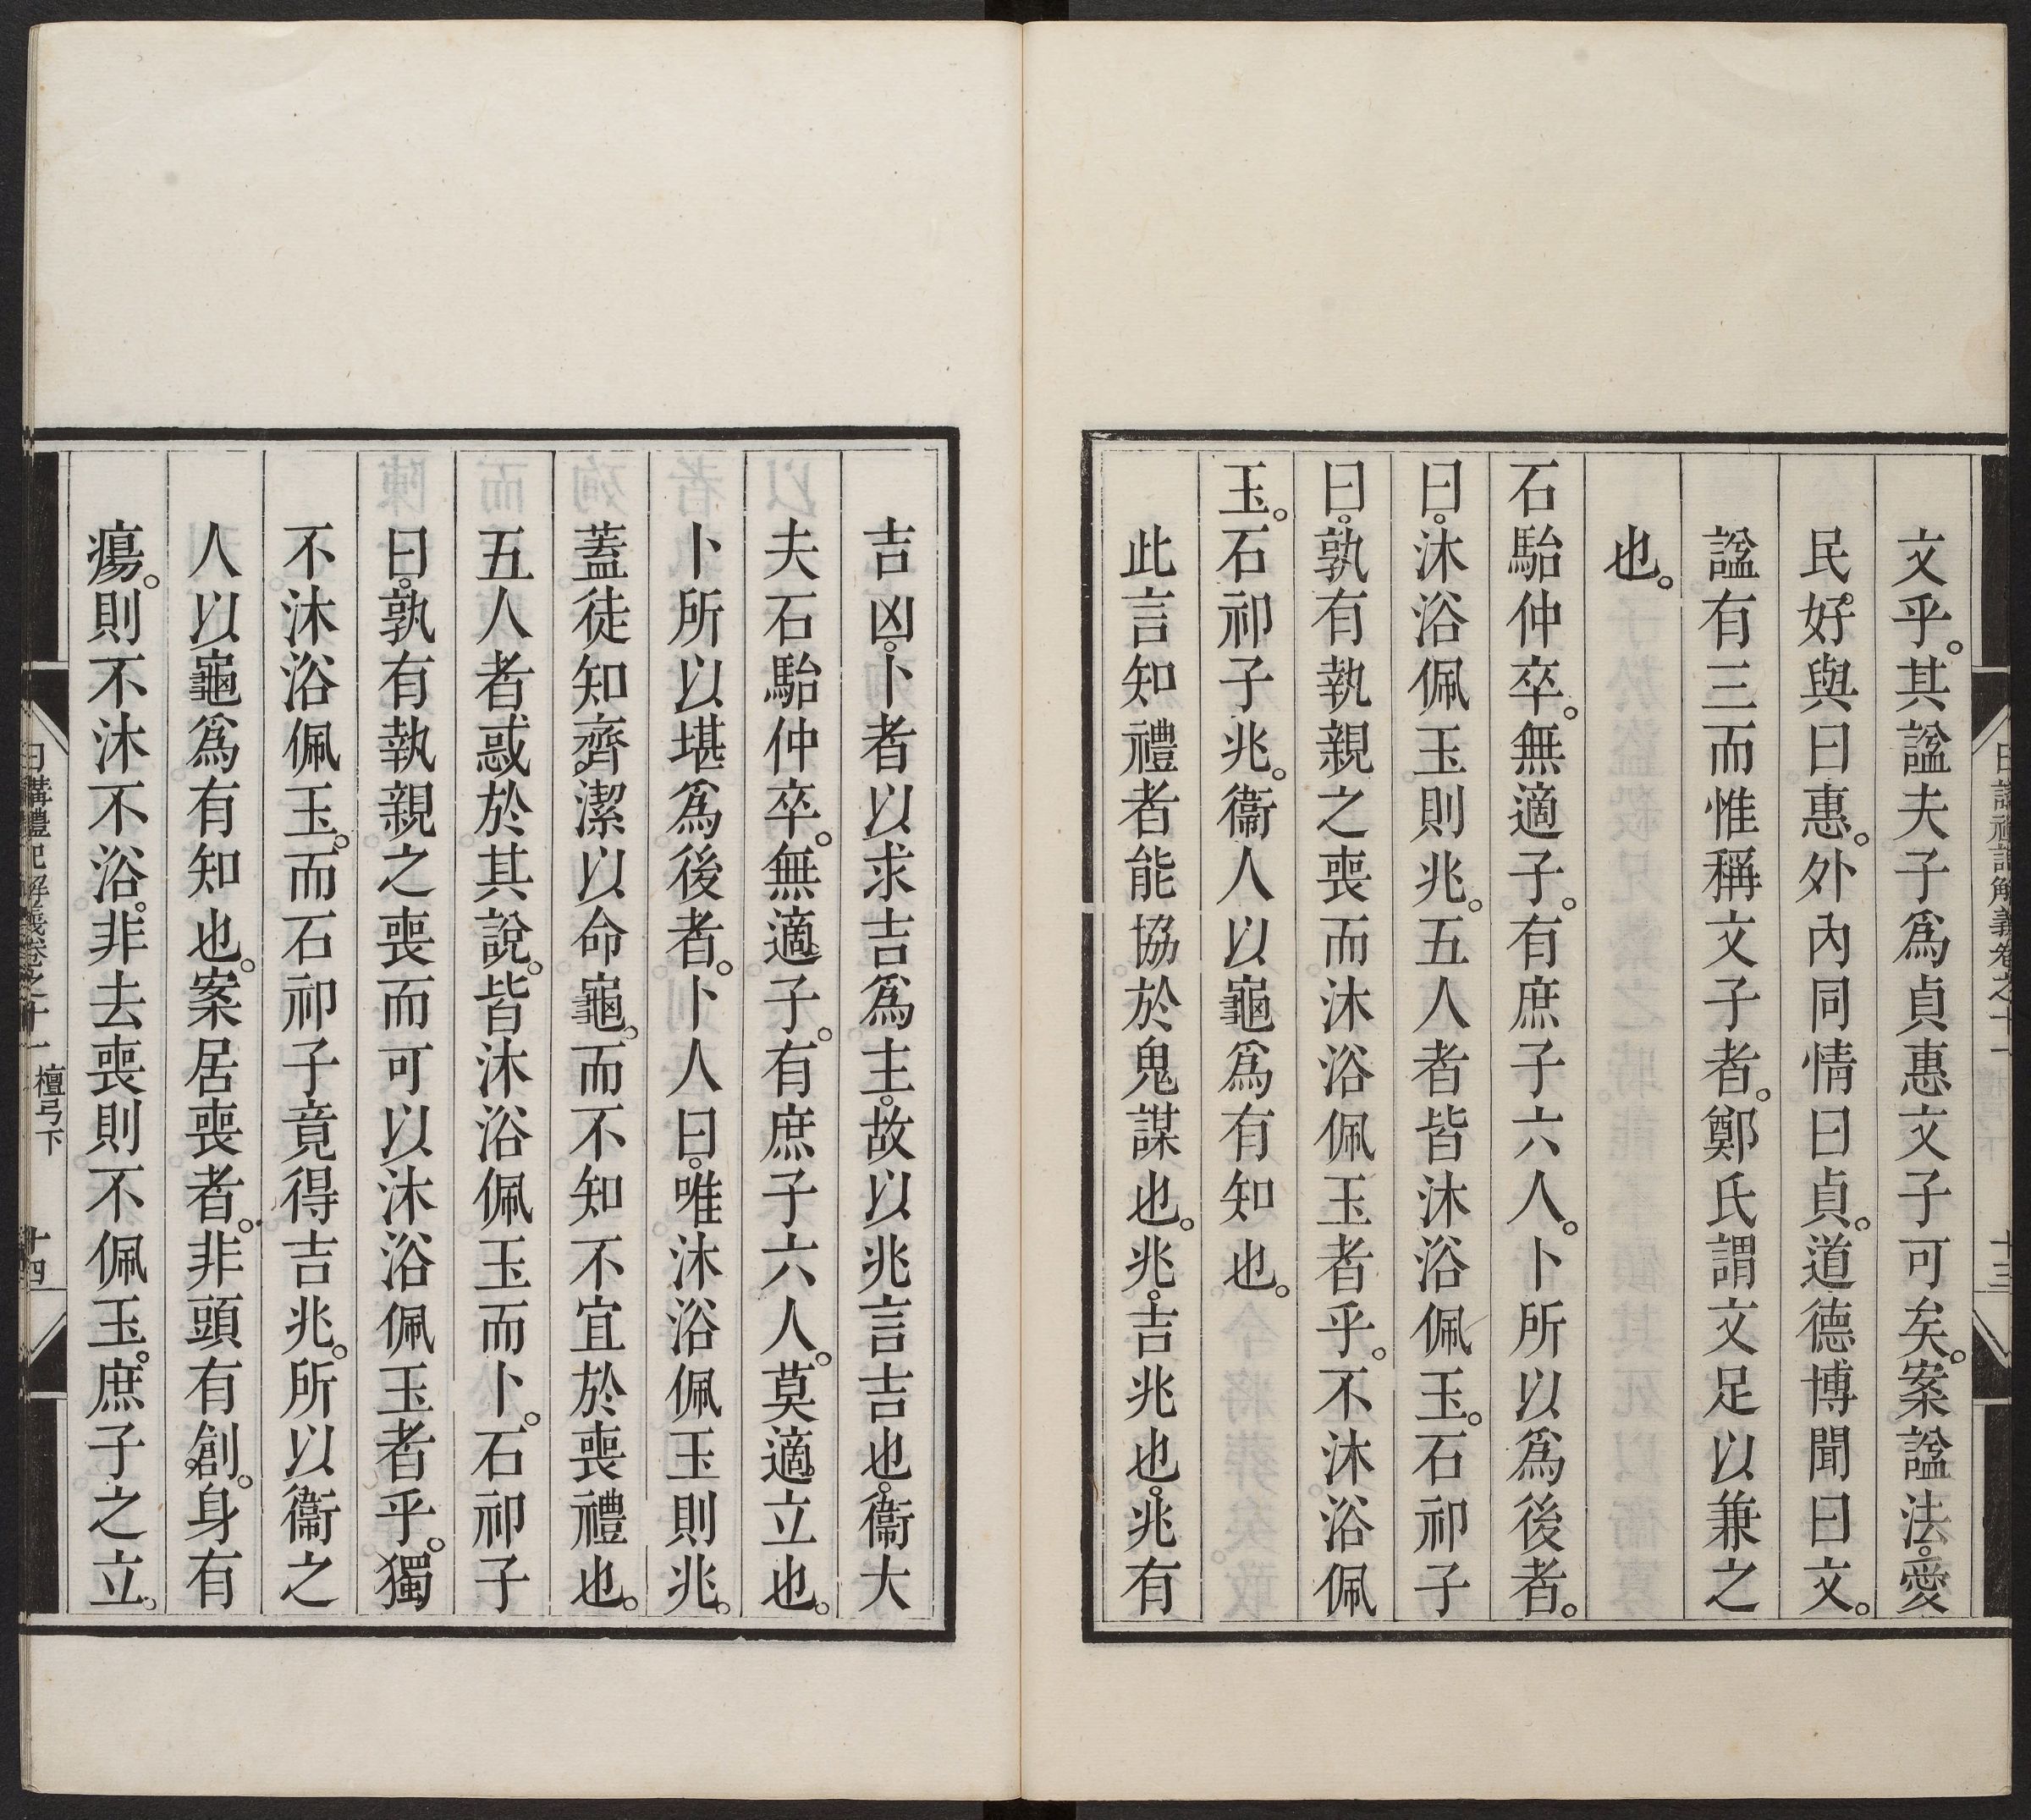 文乎。其諡夫子爲貞惠文子可矣。案諡法。愛
民好與曰惠。外內同情曰貞。道德博聞曰文。
諡有三而惟稱文子者。鄭氏謂文足以兼之
也。
石駘仲卒。無適子。有庶子六人。卜所以爲後者。
曰。沐浴佩玉則兆。五人者皆沐浴佩玉。石祁子
曰。孰有執親之喪而沐浴佩玉者乎。不沐浴佩
玉。石祁子兆。衞人以龜爲有知也。
此言知禮者能協於鬼謀也。兆。吉兆也。兆有
日講禮記解義卷之十一
十三
吉凶。卜者以求吉爲主。故以兆言吉也。衞大
夫石駘仲卒。無適子。有庶子六人。莫適立也。
卜所以堪爲後者。卜人曰。唯沐浴佩玉則兆。
蓋徒知齊潔以命龜。而不知不宜於喪禮也。
五人者惑於其說。皆沐浴佩玉而卜。石祁子
曰。孰有執親之喪而可以沐浴佩玉者乎。獨
不沐浴佩玉。而石祁子竟得吉兆。所以衞之
人以龜爲有知也。案居喪者。非頭有創。身有
瘍。則不沐不浴。非去喪則不佩玉。庶子之立。
日講禮記解義卷之十一 檀弓下
十四